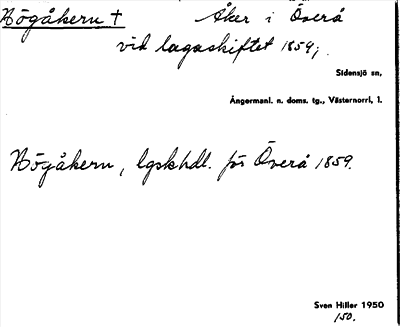 Högåkern † Åker i Överå
vid lagaskiftet 1859;
Sidensjö sn,
Ångermanl. n. doms. tg., Västernorrl, l.
Högåkern, lgskhdl. för Överå 1859.
Sven Hiller 1950
150.